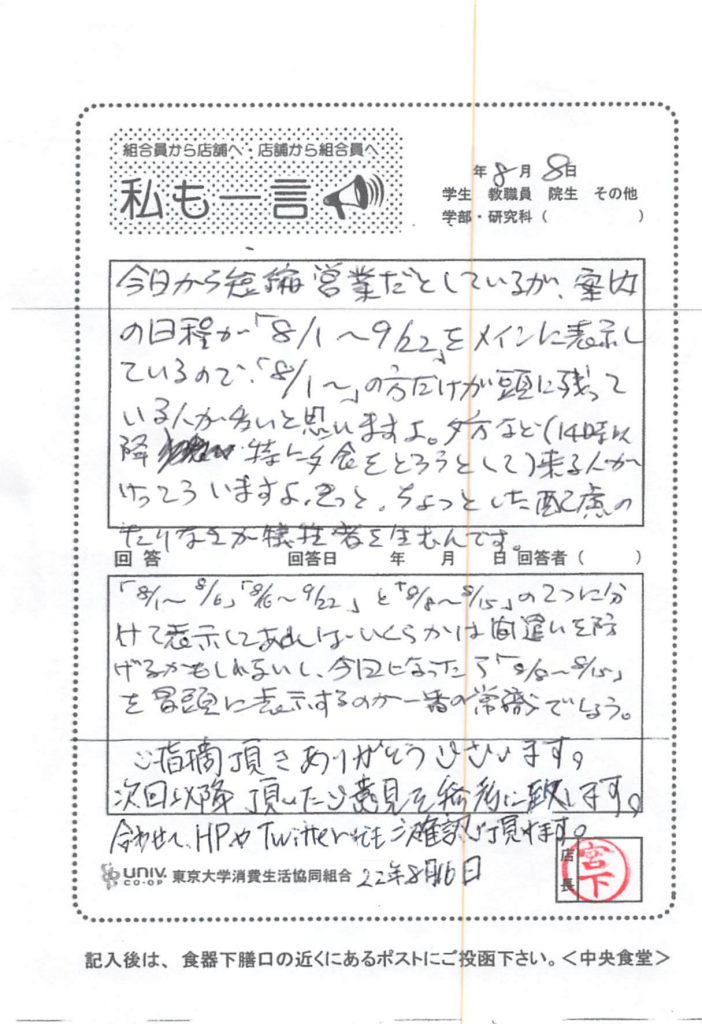 組合員から店舗へ・店舗から組合員へ
私も一言
年 8月 8日
学生 教職員 院生 その他
学部・研究科( )
今日から短縮営業だとしているが、案内
の日程が「8/1〜9/22」をメインに表示し
ているので、「8/1〜」の方だけが頭に残って
いる人が多いと思いますよ。夕方など(14時以
降 特に夕食をとろうとして)来る人が
けっこういますよ、きっと。ちょっとした配慮の
たりなさが犠牲者を生むんです。
回答 回答日 年 月 日 回答者( )
「8/1〜8/6」「8/16〜9/22」と「8/8〜8/15」の2つに分
けて表示してあればいくらかは間違いを防
げるかもしれないし、今日になったら「8/8〜8/15」
を冒頭に表示するのが一番の常識でしょう。
ご指摘頂きありがとうございます。
次回以降頂いたご意見を参考に致します。
合わせて、HPやTwitter ご確認頂けます。
UNIV. CO-OP 東京大学消費生活協同組合 22年8月16日
店長 宮下
記入後は、食器下膳口の近くにあるポストにご投函下さい。<中央食堂>